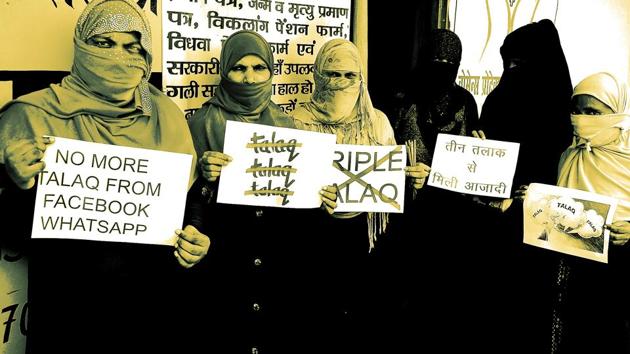 पत्र, जन्म व मृत्यु प्रमाण
पत्र, विकलांग पेंशन फार्म,
विधवा फार्म एवं
सरकारी यहाँ उपलब
गली स हाल हो
NO MORE
TALAQ FROM
FACEBOOK
WHATSAPP
talaq
talaq
talaq
RIPLE
TALAQ
तीन तलाक
से
मिली आजादी
TALAQ
TALAQ
TALAQ